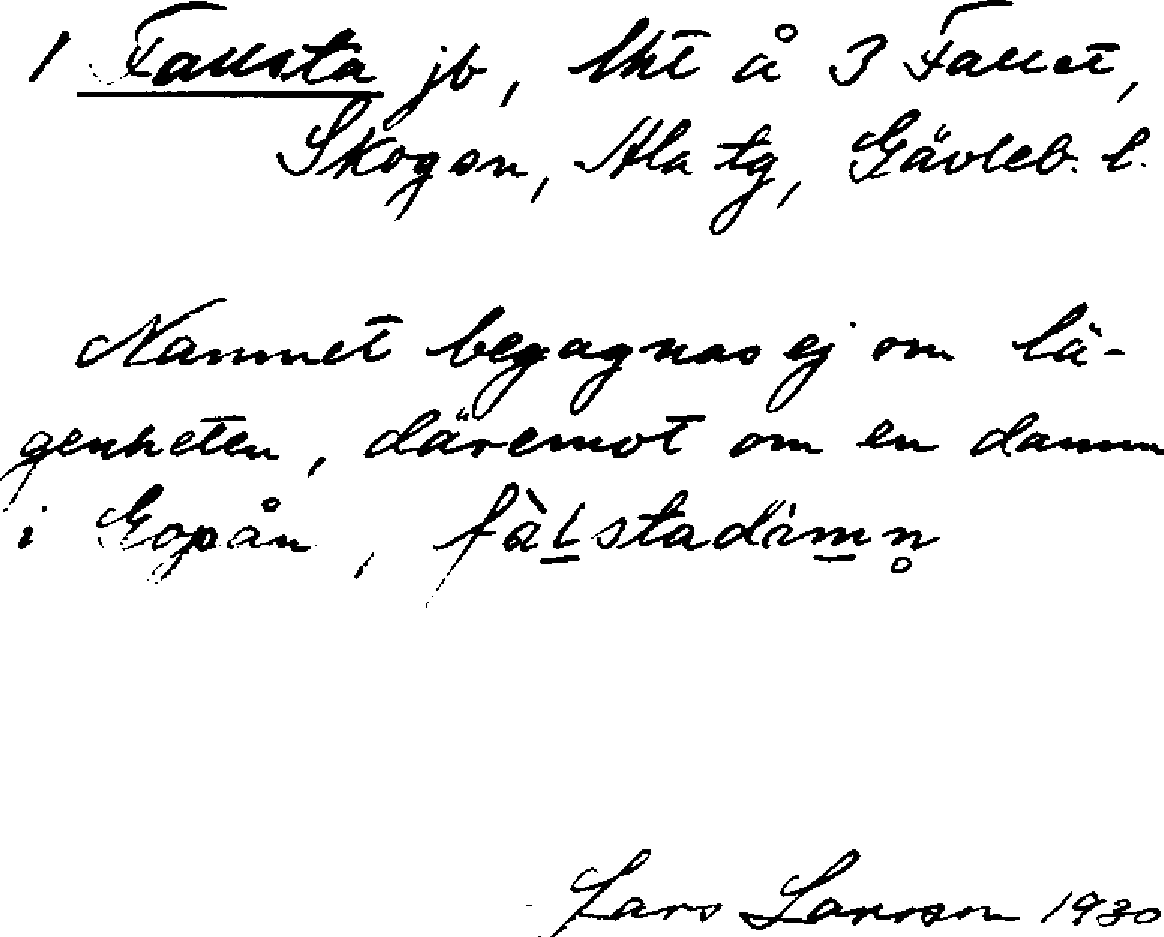 1 Fallsta jb, lht å 3 Fallet,
Skogsn, Ala tg, Gävleb. l.
Namnet begagnas ej om lä-
genheten, däremot om en damm
i Gopån, fàlstadimn̥
Lars Larsson 1930